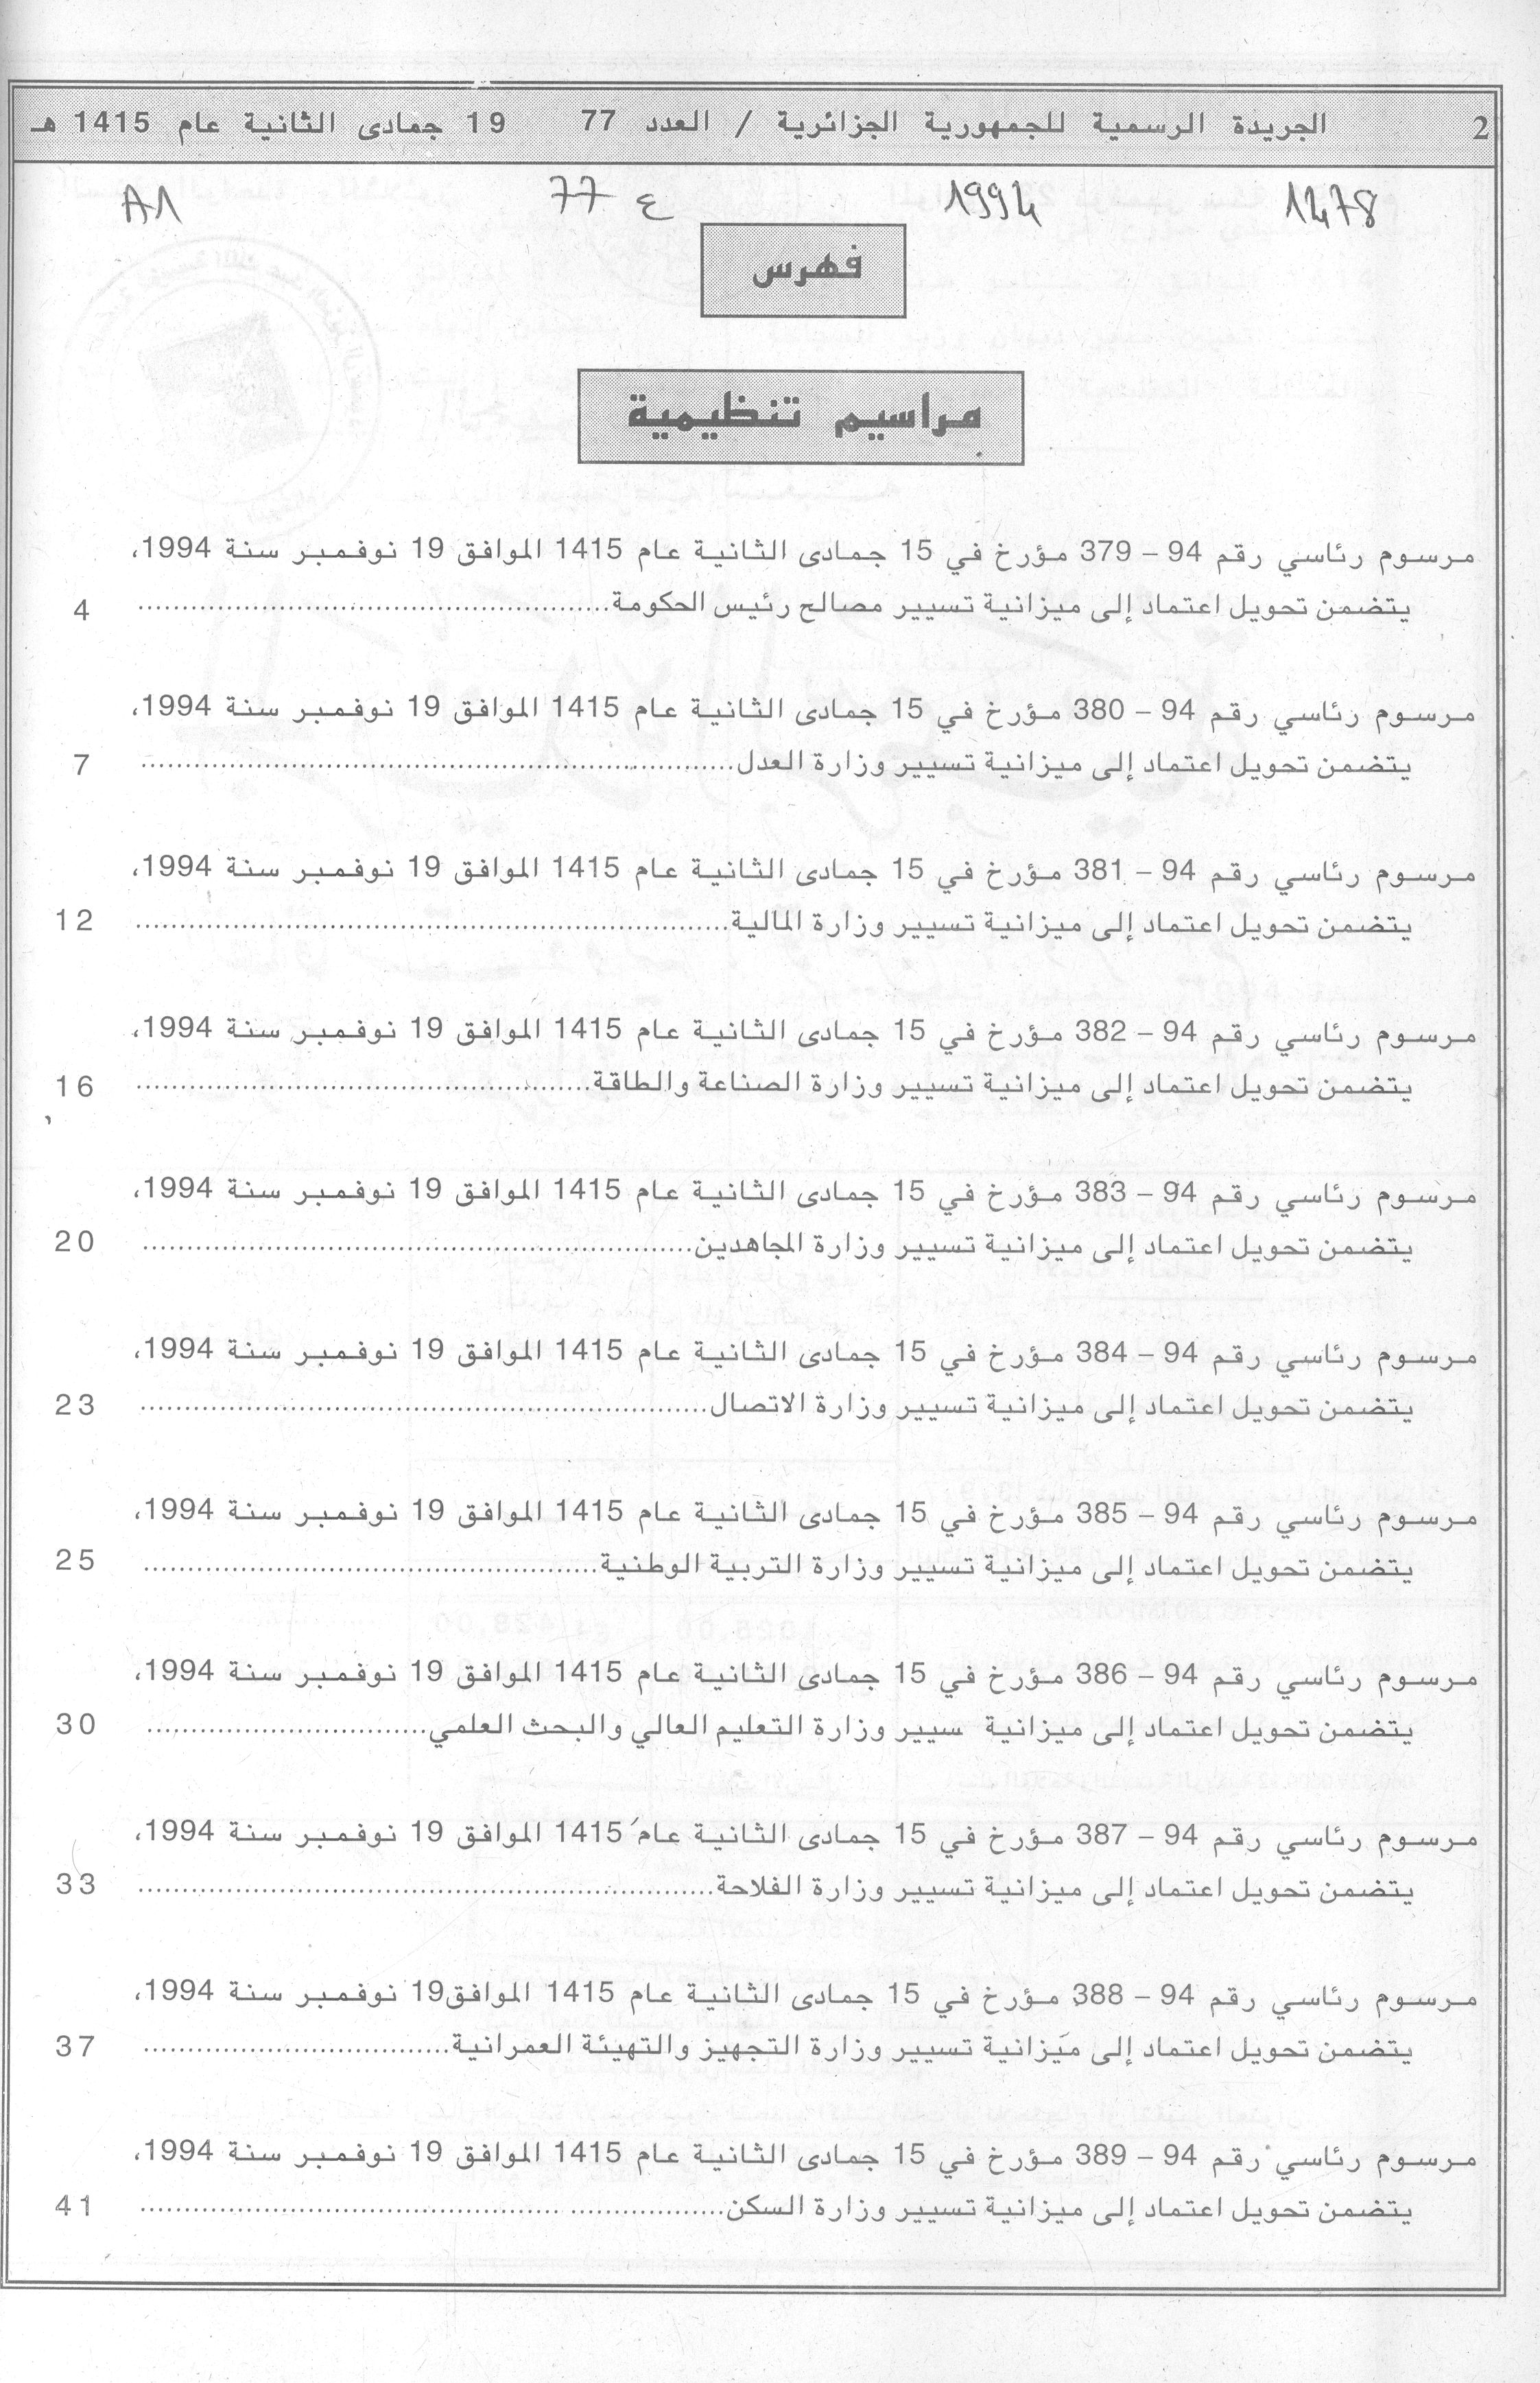 2 الجريدة الرسمية للجمهورية الجزائرية / العدد 77 19 جمادى الثانية عام 1415 هـ
1478 1994 ع 77 A1
فهرس
مراسيم تنظيمية
مرسوم رئاسي رقم 94 – 379 مؤرخ في 15 جمادى الثانية عام 1415 الموافق 19 نوفمبر سنة 1994،
يتضمن تحويل اعتماد إلى ميزانية تسيير مصالح رئيس الحكومة.................... 4
مرسوم رئاسي رقم 94 – 380 مؤرخ في 15 جمادى الثانية عام 1415 الموافق 19 نوفمبر سنة 1994،
يتضمن تحويل اعتماد إلى ميزانية تسيير وزارة العدل.................... 7
مرسوم رئاسي رقم 94 – 381 مؤرخ في 15 جمادى الثانية عام 1415 الموافق 19 نوفمبر سنة 1994،
يتضمن تحويل اعتماد إلى ميزانية تسيير وزارة المالية.................... 12
مرسوم رئاسي رقم 94 – 382 مؤرخ في 15 جمادى الثانية عام 1415 الموافق 19 نوفمبر سنة 1994،
يتضمن تحويل اعتماد إلى ميزانية تسيير وزارة الصناعة والطاقة.................... 16
مرسوم رئاسي رقم 94 – 383 مؤرخ في 15 جمادى الثانية عام 1415 الموافق 19 نوفمبر سنة 1994،
يتضمن تحويل اعتماد إلى ميزانية تسيير وزارة المجاهدين.................... 20
مرسوم رئاسي رقم 94 – 384 مؤرخ في 15 جمادى الثانية عام 1415 الموافق 19 نوفمبر سنة 1994،
يتضمن تحويل اعتماد إلى ميزانية تسيير وزارة الاتصال.................... 23
مرسوم رئاسي رقم 94 – 385 مؤرخ في 15 جمادى الثانية عام 1415 الموافق 19 نوفمبر سنة 1994،
يتضمن تحويل اعتماد إلى ميزانية تسيير وزارة التربية الوطنية.................... 25
مرسوم رئاسي رقم 94 – 386 مؤرخ في 15 جمادى الثانية عام 1415 الموافق 19 نوفمبر سنة 1994،
يتضمن تحويل اعتماد إلى ميزانية سيير وزارة التعليم العالي والبحث العلمي.................... 30
مرسوم رئاسي رقم 94 – 387 مؤرخ في 15 جمادى الثانية عام 1415 الموافق 19 نوفمبر سنة 1994،
يتضمن تحويل اعتماد إلى ميزانية تسيير وزارة الفلاحة.................... 33
مرسوم رئاسي رقم 94 – 388 مؤرخ في 15 جمادى الثانية عام 1415 الموافق19 نوفمبر سنة 1994،
يتضمن تحويل اعتماد إلى ميزانية تسيير وزارة التجهيز والتهيئة العمرانية.................... 37
مرسوم رئاسي رقم 94 – 389 مؤرخ في 15 جمادى الثانية عام 1415 الموافق 19 نوفمبر سنة 1994،
يتضمن تحويل اعتماد إلى ميزانية تسيير وزارة السكن.................... 41